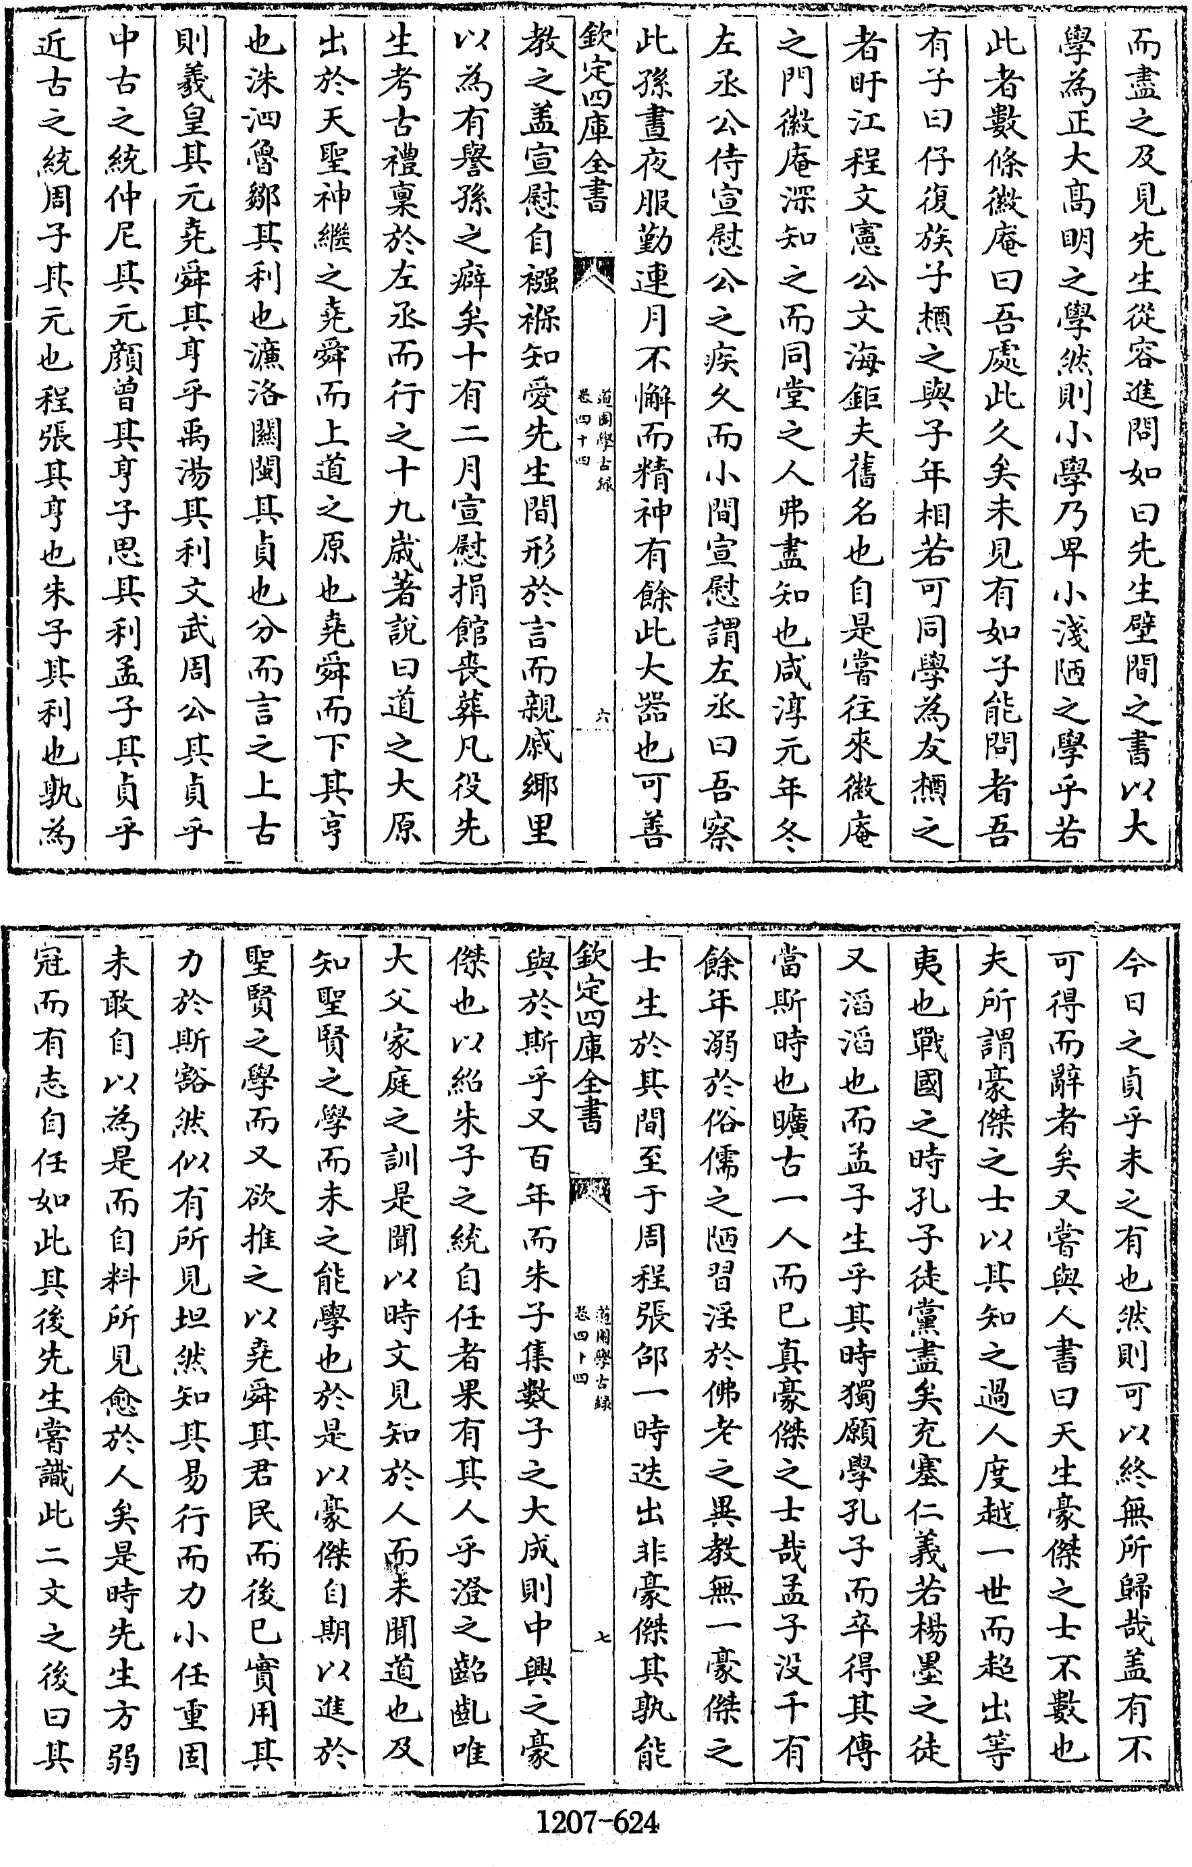 而盡之及見先生從容進問如曰先生壁間之書以大
學為正大高明之學然則小學乃卑小淺陋之學乎若
此者數條徽庵曰吾處此久矣未見有如子能問者吾
有子曰仔復族子槱之與子年相若可同學為友槱之
者盱江程文憲公文海鉅夫舊名也自是嘗往來徽庵
之門徽庵深知之而同堂之人弗盡知也咸淳元年冬
左丞公侍宣慰公之疾久而小間宣慰謂左丞曰吾察
此孫晝夜服勤連月不懈而精神有餘此大器也可善
欽定四庫全書
道園學古録
卷四十四
六
教之蓋宣慰自襁褓知愛先生間形於言而親戚鄉里
以為有譽孫之癖矣十有二月宣慰捐館喪葬凡役先
生考古禮稟於左丞而行之十九歲著說曰道之大原
出於天聖神繼之堯舜而上道之原也堯舜而下其亨
也洙泗魯鄒其利也濂洛關閩其貞也分而言之上古
則羲皇其元堯舜其亨乎禹湯其利文武周公其貞乎
中古之統仲尼其元顏曾其亨子思其利孟子其貞乎
近古之統周子其元也程張其亨也朱子其利也孰為
今日之貞乎未之有也然則可以終無所歸哉蓋有不
可得而辭者矣又嘗與人書曰天生豪傑之士不數也
夫所謂豪傑之士以其知之過人度越一世而超出等
夷也戰國之時孔子徒黨盡矣充塞仁義若楊墨之徒
又滔滔也而孟子生乎其時獨願學孔子而卒得其傳
當斯時也曠古一人而已真豪傑之士哉孟子沒千有
餘年溺於俗儒之陋習淫於佛老之異教無一豪傑之
士生於其間至于周程張邵一時迭出非豪傑其孰能
欽定四庫全書
道園學古録
卷四十四
七
與於斯乎又百年而朱子集數子之大成則中興之豪
傑也以紹朱子之統自任者果有其人乎澄之齠齔唯
大父家庭之訓是聞以時文見知於人而未聞道也及
知聖賢之學而未之能學也於是以豪傑自期以進於
聖賢之學而又欲推之以堯舜其君民而後已實用其
力於斯豁然似有所見坦然知其易行而力小任重固
未敢自以為是而自料所見愈於人矣是時先生方弱
冠而有志自任如此其後先生嘗識此二文之後曰其
1207-624